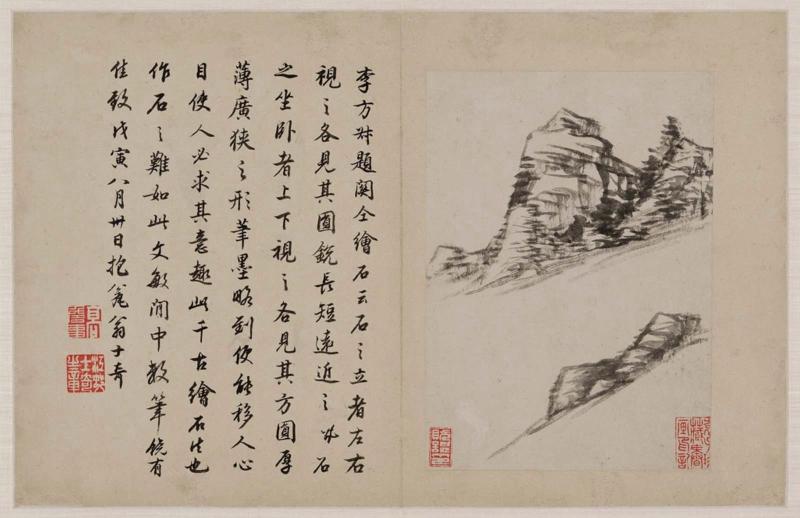 李方叔題關仝繪石云石之立者左右
視之各見其圓銳長短遠近之形石
之坐臥者上下視之各見其方圓厚
薄廣狹之形筆墨略到便能移人心
目使人必求其意趣此千古繪石法也
作石之難如此文敏閒中數筆饒有
佳致戊寅八月卅日抱瓮翁士奇
江邨士奇之章